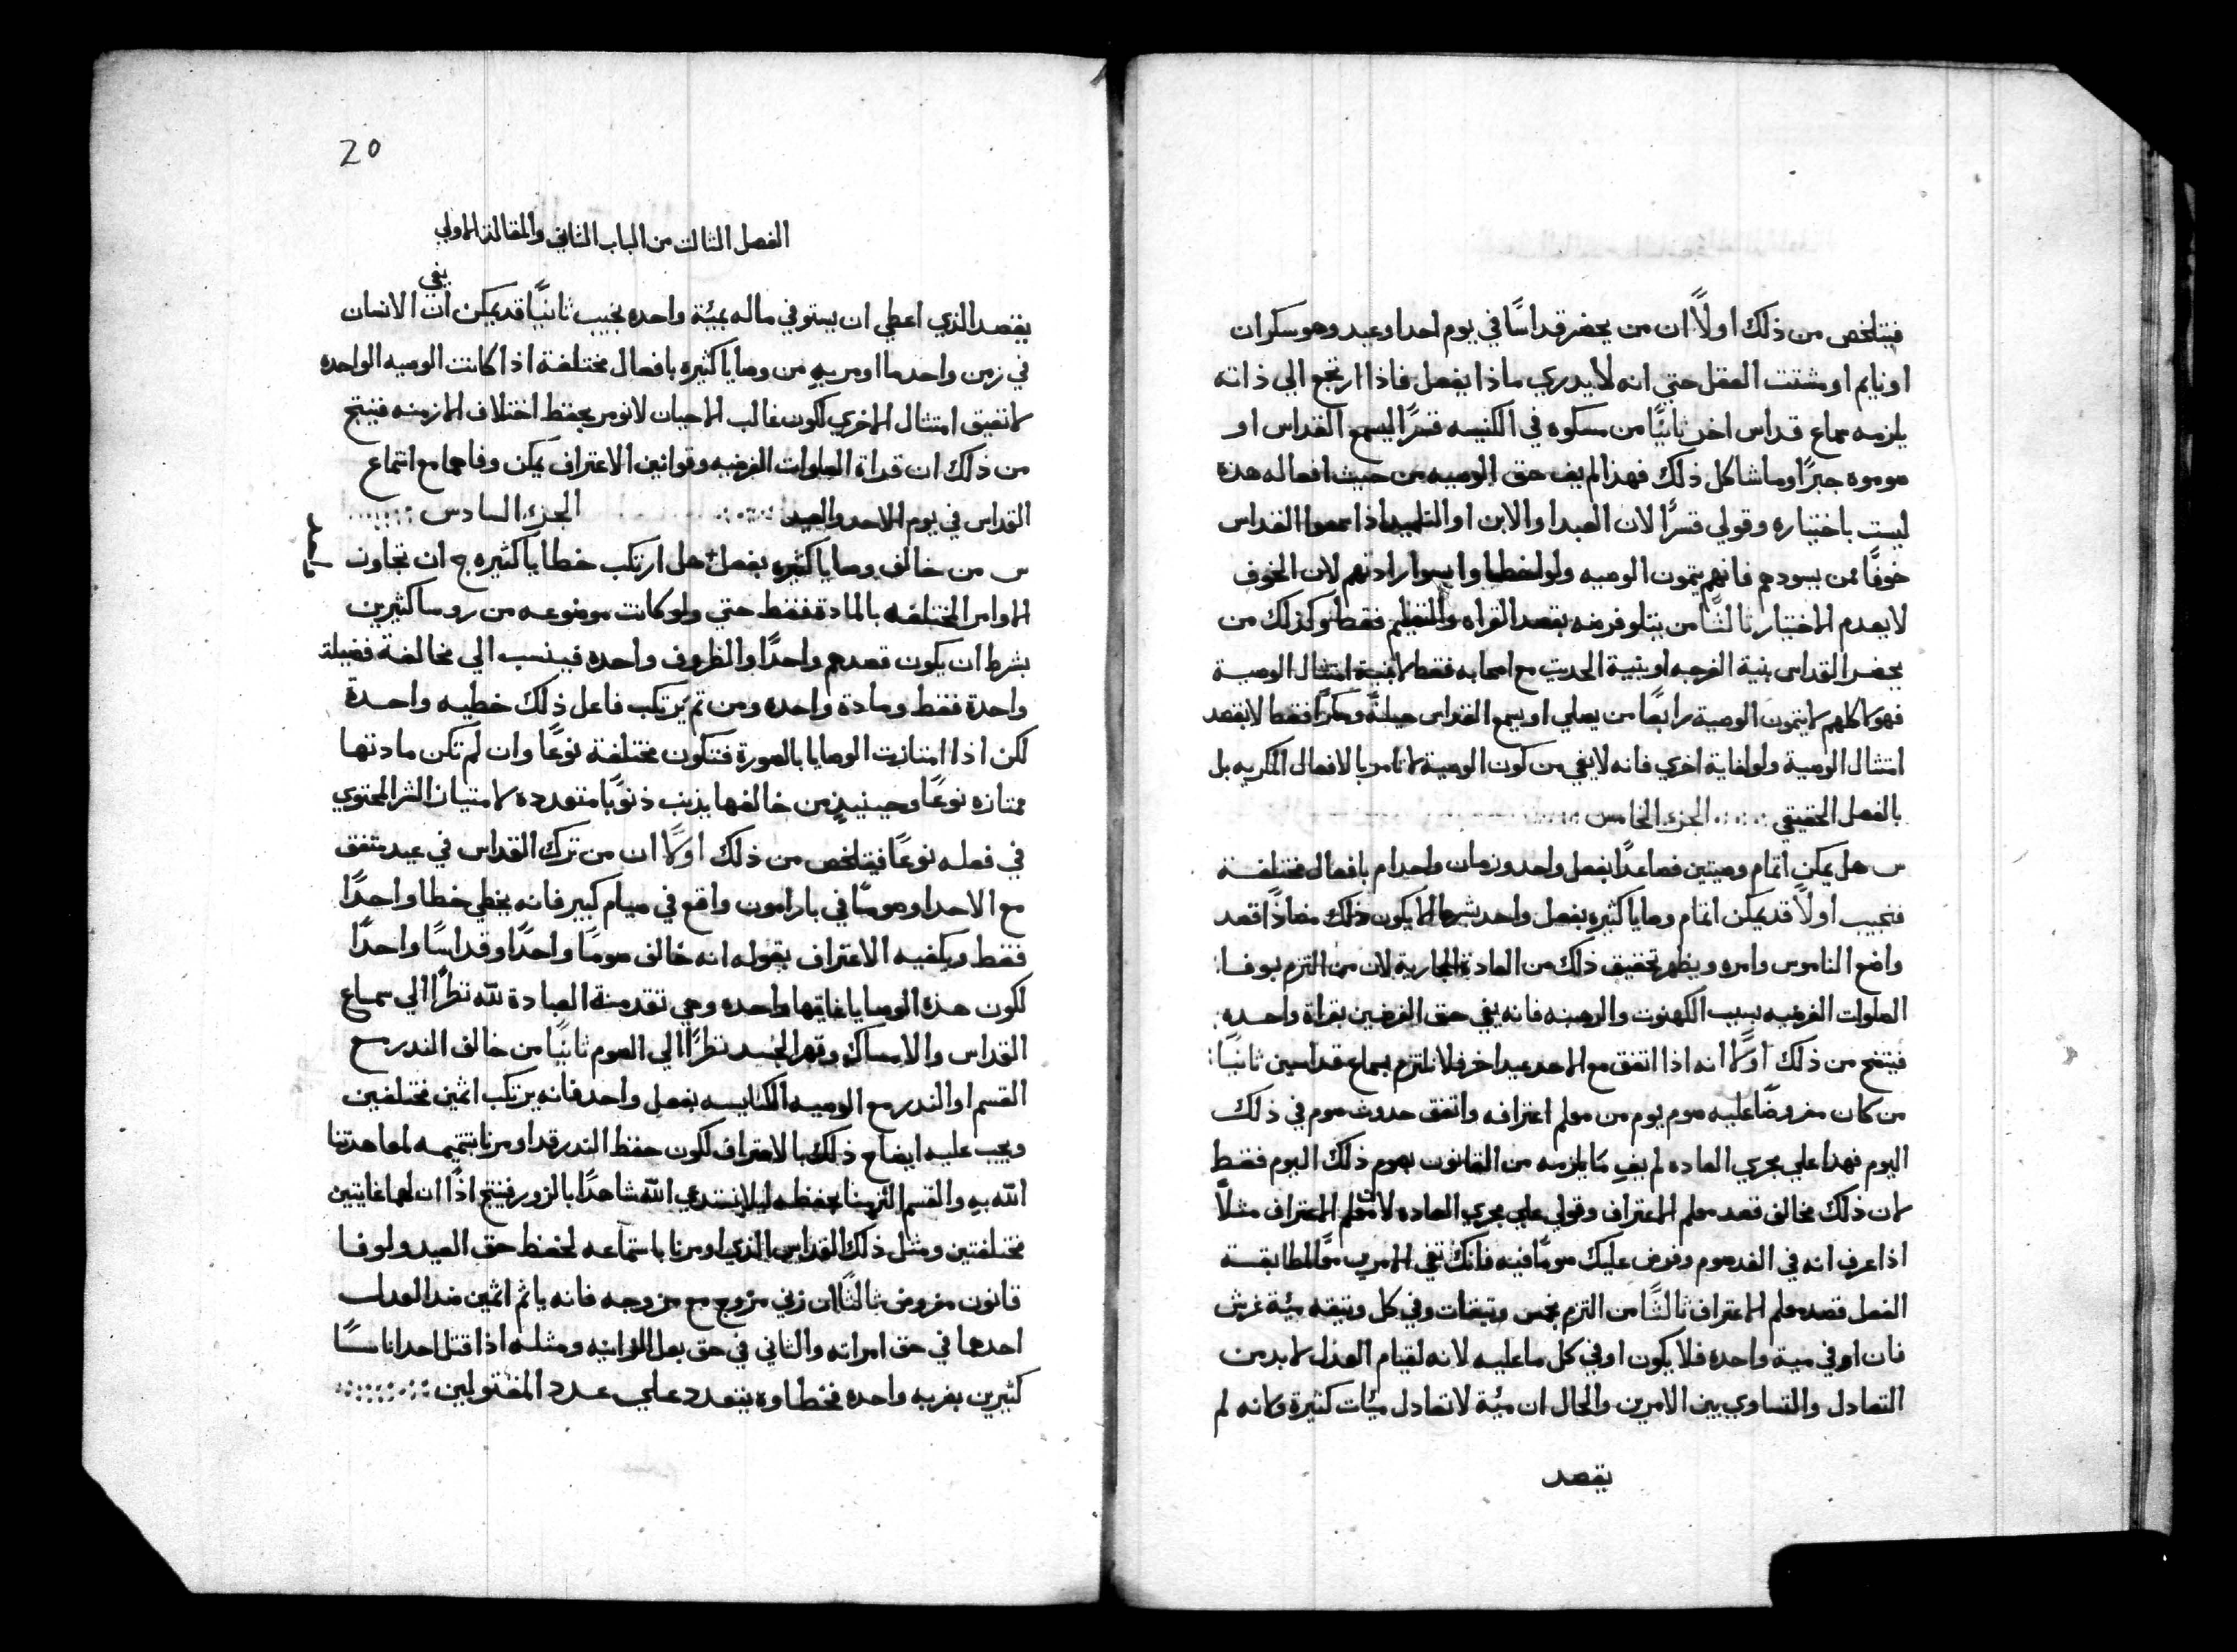 فيتلخص من ذلك اولاً ان من يحضر قداسًا في يوم احد او عيد وهو سكران
او نايم او مشتت العقل حتي انه لا يدري ماذا يفعل فاذا ارتجع الي ذاته
يلزمه سماع قداس اخر ثانيًا من مسكوه في الكنيسه قسرًا ليسمع القداس او
صوموه جبرًا وما شاكل ذلك فهذا لم يفِ حق الوصيه من حيث افعاله هذه
ليست باختياره وقولي قسرًا لان العبد او الابن او التلميذ اذا سمعوا القداس
خوفًا ممن يسودهم فانهم يتمون الوصيه ولو اغتصبوا ارادتهم لان الخوف
لا يعدم الاختيار ثالثًا من يتلو فرضه بقصد القراه والتعليم فقط وكذلك من
يحضر القداس بنية الفرجه او بنية الحديث مع اصحابه فقط لا بنية امتثال الوصية
فهولا كلهم لا يتمون الوصية رابعًا من يصلي او يسمع القداس حيلةً ومكرًا فقط لا بقصد
امتثال الوصية ولو لغاية اخري فانه لا يفي من كون الوصية لا تامر بالافعال المكريه بل
بالفعل الحقيقي الجزء الخامس
س هل يمكن اتمام وصيتين فصاعدًا بفعل واحد وزمان واحد ام بافعال مختلفة
فنجيب اولاً قد يمكن اتمام وصايا كثيره بفعل واحد بشرط الا يكون ذلك مضاددًا قصد
واضع الناموس وامره ويظهر تحقيق ذلك من العادة الجارية لان من التزم بوفا
الصلوات الفرضيه بسبب الكهنوت والرهبنه فانه يفي حق الفرضين بقراة واحده
فيتضح من ذلك اولاً انه اذا اتفق مع الاحد عيد اخر فلا نلتزم بسماع قداسين ثانيًا
من كان مفروضًا عليه صوم يوم من معلم اعترافه واتفق حدوث صوم في ذلك
اليوم فهذا علي مجري العاده لم يفِ ما يلزمه من القانون بصوم ذلك اليوم فقط
لان ذلك مخالف قصد معلم الاعتراف وقولي علي مجري العاده لان معلم الاعتراف مثلاً
اذا عرف انه في الغد صوم وفرض عليك صومًا فيه فانك تفي الامرين معًا لمطابقة
الفعل قصد معلم الاعتراف ثالثًا من التزم بخمس وثيقات وفي كل وثيقه مئة غرش
فان اوفي مية واحده فلا يكون اوفي كل ما عليه لانه لقيام العدل لا بد من
التعادل والتساوي بين الامرين والحال ان مئة لا تعادل مئات كثيرة ولانه لم
يقصد
20
الفصل الثالث من الباب الثاني والمقالة الاولي
يفي
يقصد الذي اعطي ان يستوفي ماله بمئة واحده نجيب ثانيًا قد يمكن ان الانسان
في زمن واحد ما اومر بهِ من وصايا كثيره بافعال مختلفة اذا كانت الوصيه الواحده
لا تعيق امتثال الاخري لكون غالب الاحيان لا نومر بحفظ اختلاف الازمنه فينتج
من ذلك ان قراة الصلوات الفرضيه وقوانين الاعتراف يمكن وفاها مع استماع
القداس في يوم الاحد والعيد الجزء السادس
س من خالف وصايا كثيره بفعل هل ارتكب خطايا كثيره ج ان تجاوز
الاوامر المختلفه بالمادة فقط حتي ولو كانت موضوعه من روسا كثيرين
بشرط ان يكون قصدهم واحدًا والظروف واحده فينسب الي مخالفة فضيلة
واحدة فقط ومادة واحده ومن ثم يرتكب فاعل ذلك خطيه واحدة
لكن اذا امتازت الوصايا بالصورة فتكون مختلفة نوعًا وان لم تكن مادتها
ممتازه نوعًا وحينيذٍ من خالفها يذنب ذنوبًا متعدده لامتياز الشر المحتوي
في فعله نوعًا فيتلخص من ذلك اولاً ان من ترك القداس في عيد متفق
مع الاحد او صومًا في بارامون واقع في صيام كبير فانه يخطي خطا واحدًا
فقط ويكفيه الاعتراف بقوله انه خالف صومًا واحدًا وقداسًا واحدًا
لكون هذه الوصايا غايتها واحده وهي تقدمة العبادة لله نظرًا الي سماع
القداس والامساك وقهر الجسد نظرًا الي الصوم ثانيًا من خالف الندر مع
القسم او الندر مع الوصيه الكنايسيه بفعل واحد فانه يرتكب اثمين مختلفين
ويجب عليه ايضاح ذلك بالاعتراف لكون حفظ الندر قد اومرنا بتتميمه لما عاهدتنا
الله بهِ والقسم التزمنا بحفظه ليلا نستدعي الله شاهدًا بالزور فينتج اذًا ان لهما غايتين
مختلفتين ومثل ذلك القداس الذي اومرنا باستماعه لحفظ حق العيد ولوفا
قانون مفروض ثالثًا ان زني مزوج مع مزوجه فانه ياثم اثمين ضد العدل
احدهما في حق امراته والثاني في حق بعل الزانيه ومثله اذا قتل احد اناسًا
كثيرين بضربه واحده فخطاوه يتعدد علي عدد المقتولين